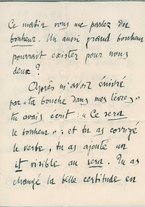 Ce matin vous me parlez de
bonheur. Un aussi grand bonheur
pourrait exister pour nous
deux ?
Après m'avoir enivré
par ta bouche dans mes lèvres
tu avais écrit : Ce sera
le bonheur ; et tu as corrigé
le verbe, tu as ajouté un
it visible au sera. Tu as
changé la belle certitude en